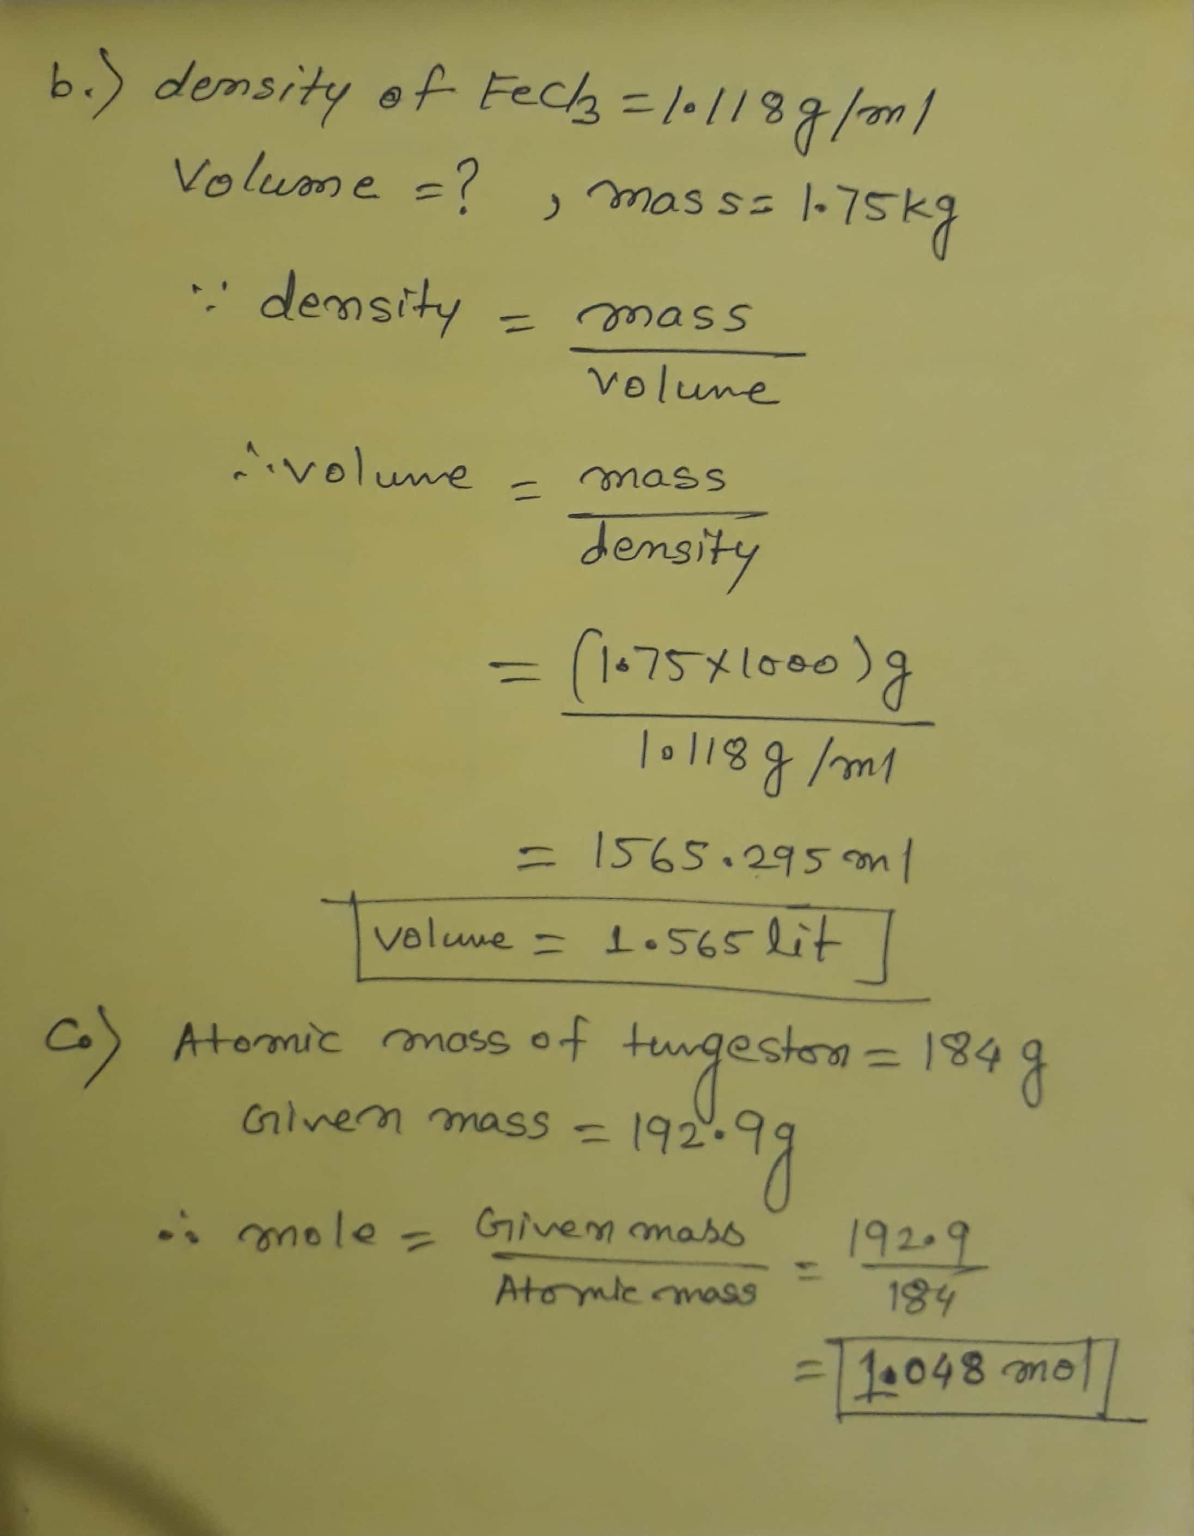 b.) density of FeCl3 = 1.118g/ml
Volume =? , mass= 1.75kg
∵ density = mass
volume
∴ volume = mass
density
= (1.75×1000)g
1.118g/ml
= 1565.295 ml
volume = 1.565 lit
C.) Atomic mass of tungeston = 184 g
Given mass = 192.9g
∴ mole = Given mass = 192.9
Atomic mass 184
= 1.048 mol